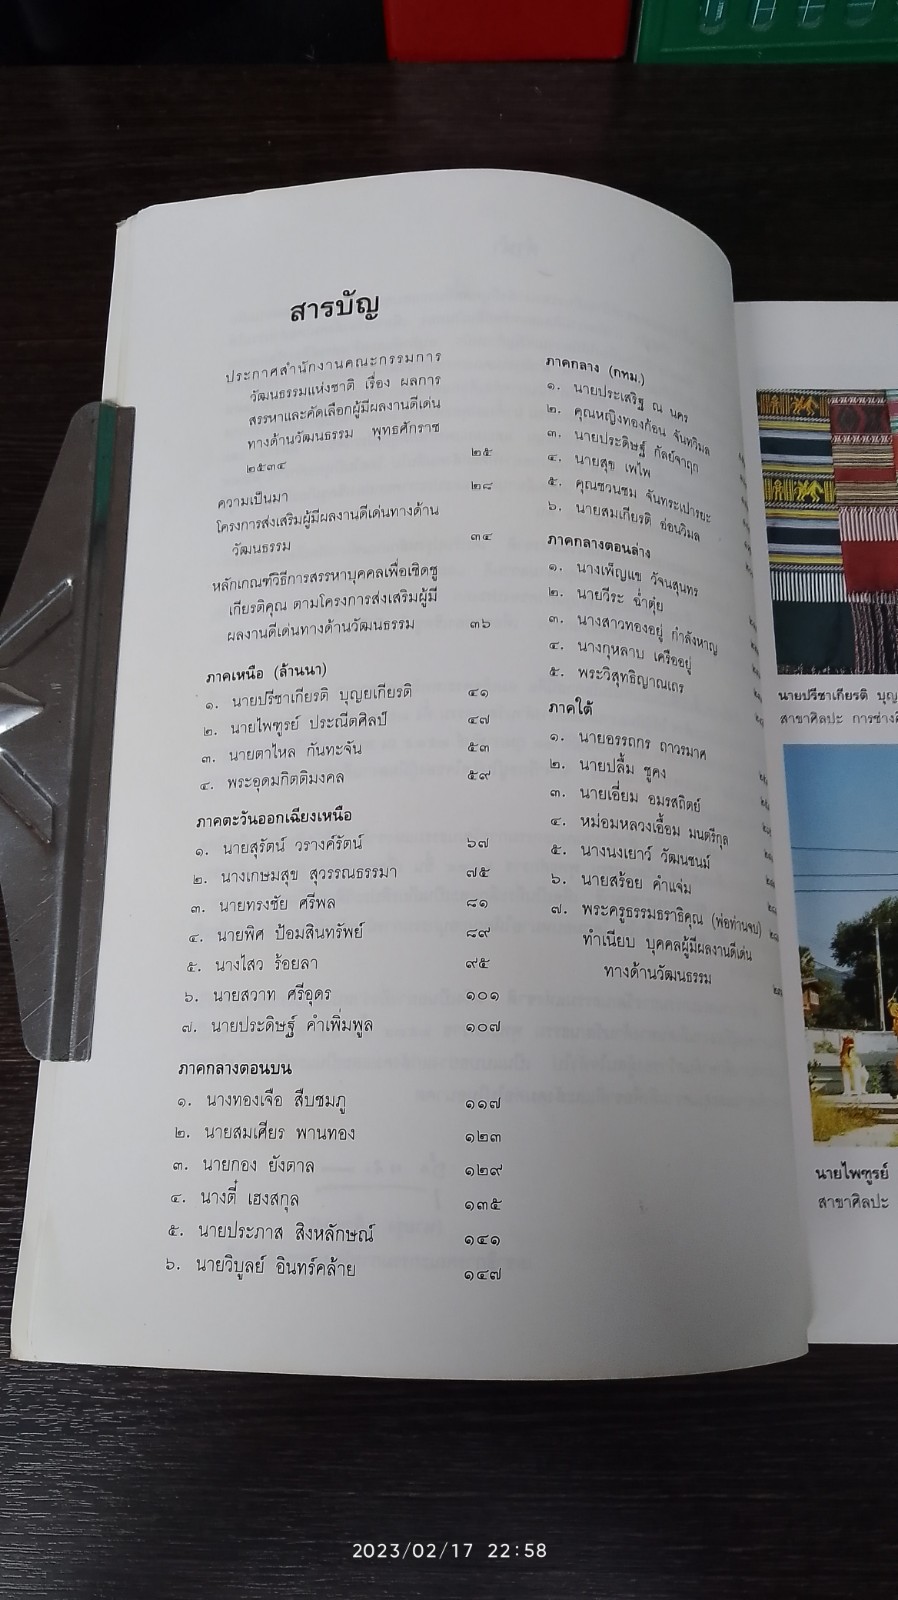 สารบัญ
ประกาศสำนักงานคณะกรรมการ
วัฒนธรรมแห่งชาติ เรื่อง ผลการ
สรรหาและคัดเลือกผู้มีผลงานดีเด่น
ทางด้านวัฒนธรรม พุทธศักราช
๒๕๓๔ ๒๕
ความเป็นมา ๒๘
โครงการส่งเสริมผู้มีผลงานดีเด่นทางด้าน
วัฒนธรรม ๓๔
หลักเกณฑ์วิธีการสรรหาบุคคลเพื่อเชิดชู
เกียรติคุณ ตามโครงการส่งเสริมผู้มี
ผลงานดีเด่นทางด้านวัฒนธรรม ๓๖
ภาคเหนือ (ล้านนา)
๑. นายปรีชาเกียรติ บุญยเกียรติ ๔๑
๒. นายไพฑูรย์ ประณีตศิลป์ ๔๗
๓. นายตาไหล กันทะจัน ๕๓
๔. พระอุดมกิตติมงคล ๕๙
ภาคตะวันออกเฉียงเหนือ
๑. นายสุรัตน์ วรางค์รัตน์ ๖๗
๒. นางเกษมสุข สุวรรณธรรมา ๗๕
๓. นายทรงชัย ศรีพล ๘๑
๔. นายพิศ ป้อมสินทรัพย์ ๘๙
๕. นางไสว ร้อยลา ๙๕
๖. นายสวาท ศรีอุดร ๑๐๑
๗. นายประดิษฐ์ คำเพิ่มพูล ๑๐๗
ภาคกลางตอนบน
๑. นางทองเจือ สืบชมภู ๑๑๗
๒. นายสมเศียร พานทอง ๑๒๓
๓. นายกอง ยังตาล ๑๒๙
๔. นางดี๋ เฮงสกุล ๑๓๕
๕. นายประภาส สิงหลักษณ์ ๑๔๑
๖. นายวิบูลย์ อินทร์คล้าย ๑๔๗
ภาคกลาง (กทม.)
๑. นายประเสริฐ ณ นคร
๒. คุณหญิงทองก้อน จันทวิมล
๓. นายประดิษฐ์ กัลย์จาฤก
๔. นายสุข เพไพ
๕. คุณชวนชม จันทระเปารยะ
๖. นายสมเกียรติ อ่อนวิมล
ภาคกลางตอนล่าง
๑. นางเพ็ญแข วัจนสุนทร
๒. นายวีระ ฉ่ำตุ๋ย
๓. นางสาวทองอยู่ กำลังหาญ
๔. นางกุหลาบ เครืออยู่
๕. พระวิสุทธิญาณเถร
ภาคใต้
๑. นายอรรถกร ถาวรมาศ
๒. นายปลื้ม ชูคง
๓. นายเอี่ยม อมรสถิตย์
๔. หม่อมหลวงเอื้อม มนตรีกุล
๕. นางนงเยาว์ วัฒนชนม์
๖. นายสร้อย ดำแจ่ม
๗. พระครูธรรมธราธิคุณ (พ่อท่านจบ)
ทำเนียบ บุคคลผู้มีผลงานดีเด่น
ทางด้านวัฒนธรรม
นายปรีชาเกียรติ บุญ
สาขาศิลปะ การช่าง
นายไพฑูรย์
สาขาศิลปะ
2023/02/17 22:58